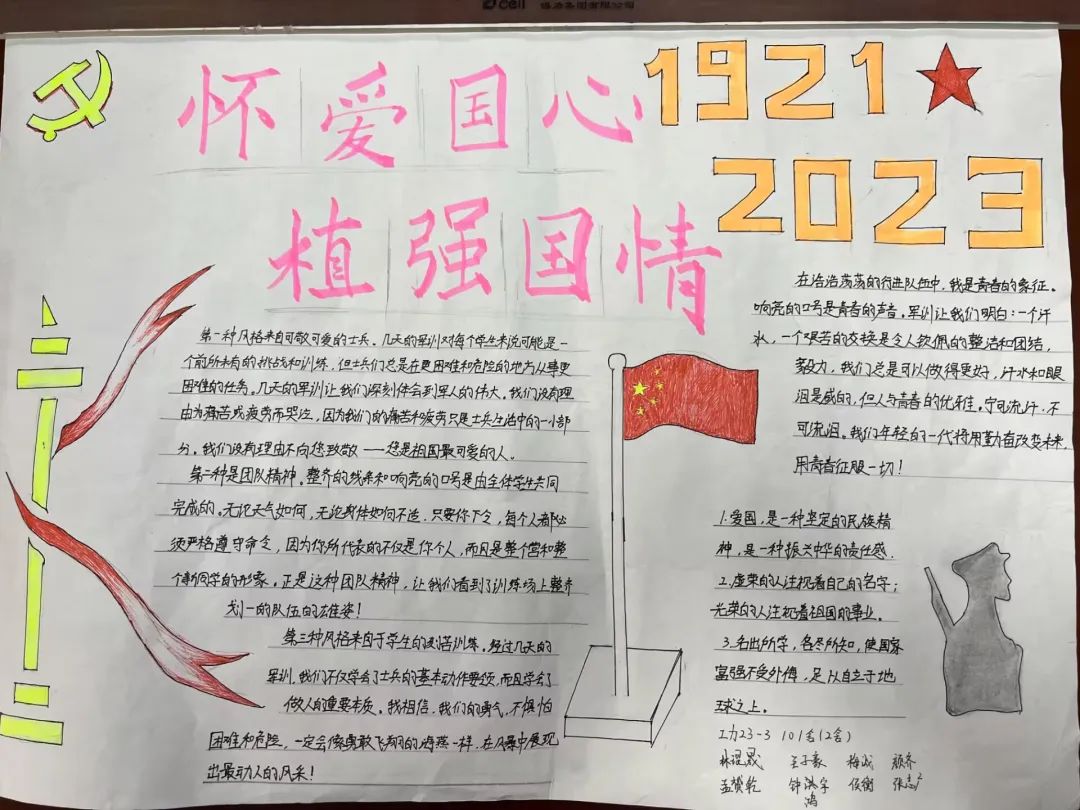 怀爱国心
植强国情
1921
2023
第一种风格来自可敬可爱的士兵。几天的军训对每个学生来说可能是一
个前所未有的挑战和训练，但士兵们总是在更困难和危险的地方从事更
困难的任务。几天的军训让我们深刻体会到军人的伟大。我们没有理
由为痛苦或疲劳而哭泣，因为我们的痛苦和疲劳只是士兵生活中的一小部
分。我们没有理由不向您致敬——您是祖国最可爱的人。
第二种是团队精神。整齐的线条和响亮的口号是由全体学生共同
完成的。无论天气如何，无论身体如何不适，只要你下令，每个人都必
须严格遵守命令，因为你所代表的不仅是你个人，而且是整个营和整
个新同学的形象。正是这种团队精神，让我们看到了训练场上整齐
划一的队伍的雄姿！
第三种风格来自于学生的刻苦训练。经过几天的
军训，我们不仅学会了士兵的基本动作要领，而且学会了
做人的重要本质。我相信，我们的勇气，不惧怕
困难和危险，一定会像勇敢飞翔的海燕一样，在风暴中展现
出最动人的风采！
在浩浩荡荡的行进队伍中，我是青春的象征。
响亮的口号是青春的声音。军训让我们明白：一个汗
水，一个艰苦的交换是令人钦佩的整洁和团结，
毅力，我们总是可以做得更好，汗水和眼
泪是咸的，但人与青春的优雅。宁可流汗，不
可流泪。我们年轻的一代将用勤奋改变未来，
用青春征服一切！
1.爱国，是一种坚定的民族精
神，是一种振兴中华的责任感.
2.虚荣的人注视着自己的名字；
光荣的人注视着祖国的事业。
3.各出所学，各尽所知，使国家
富强不受外侮，足以自立于地
球之上。
工力23-3 101舍(2舍)